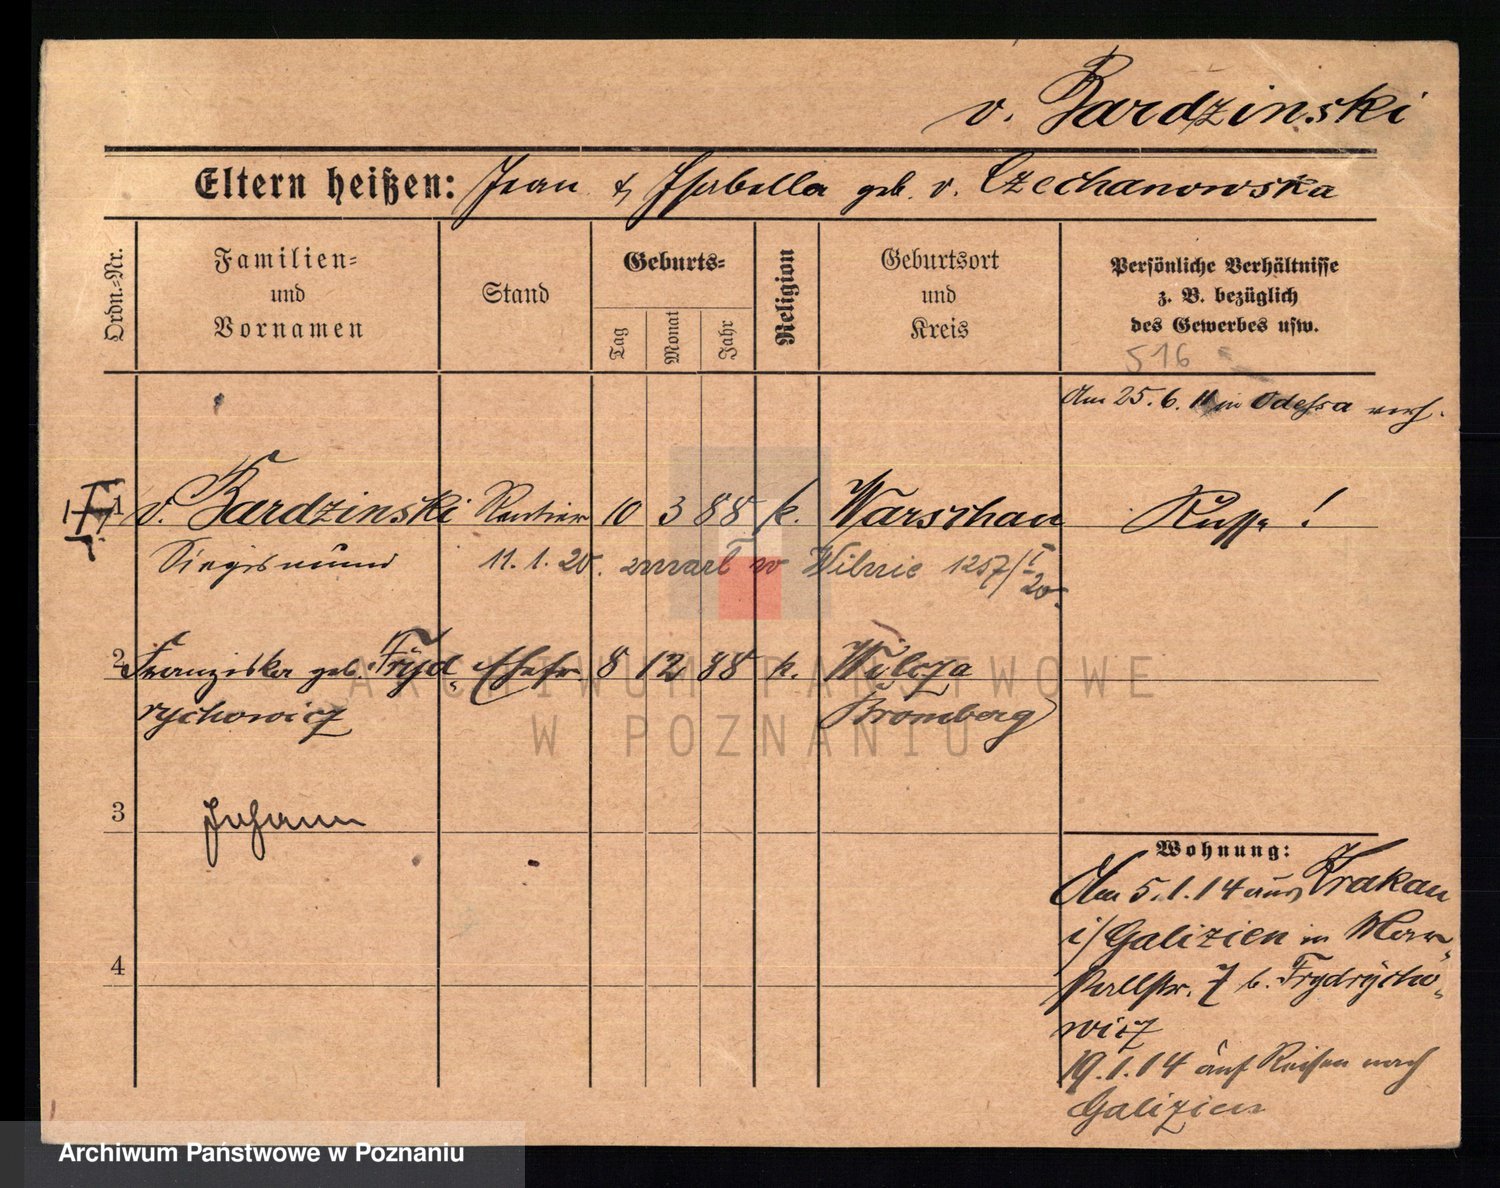 v. Bardzinski
Eltern heißen: Jean & Isabella geb. v. Czechanowska
Ordn.-Nr.
Familien-
und
Vornamen
Stand
Geburts-
Tag
Monat
Jahr
Religion
Geburtsort
und
Kreis
Persönliche Verhältnisse
z. B. bezüglich
des Gewerbes usw.
516
Am 25. 6. 11 in Odessa verh.
1 v. Bardzinski Rentier 10 3 88 k. Warschau Russe !
Siegismund 11. 1. 20. zmarł w Wilnie 1257/I 20.
2 Franziska geb. Fryd- Ehefr. 8 12 88 k. Wilcza
rychowicz Bromberg
3 Johann
4
Wohnung:
Am 5. 1. 14 aus Krakau
i/Galizien in Mar-
stallstr. 7 b. Frydrycho-
wicz
19. 1. 14 auf Reisen nach
Galizien
ARCHIWUM PAŃSTWOWE
W POZNANIU
Archiwum Państwowe w Poznaniu